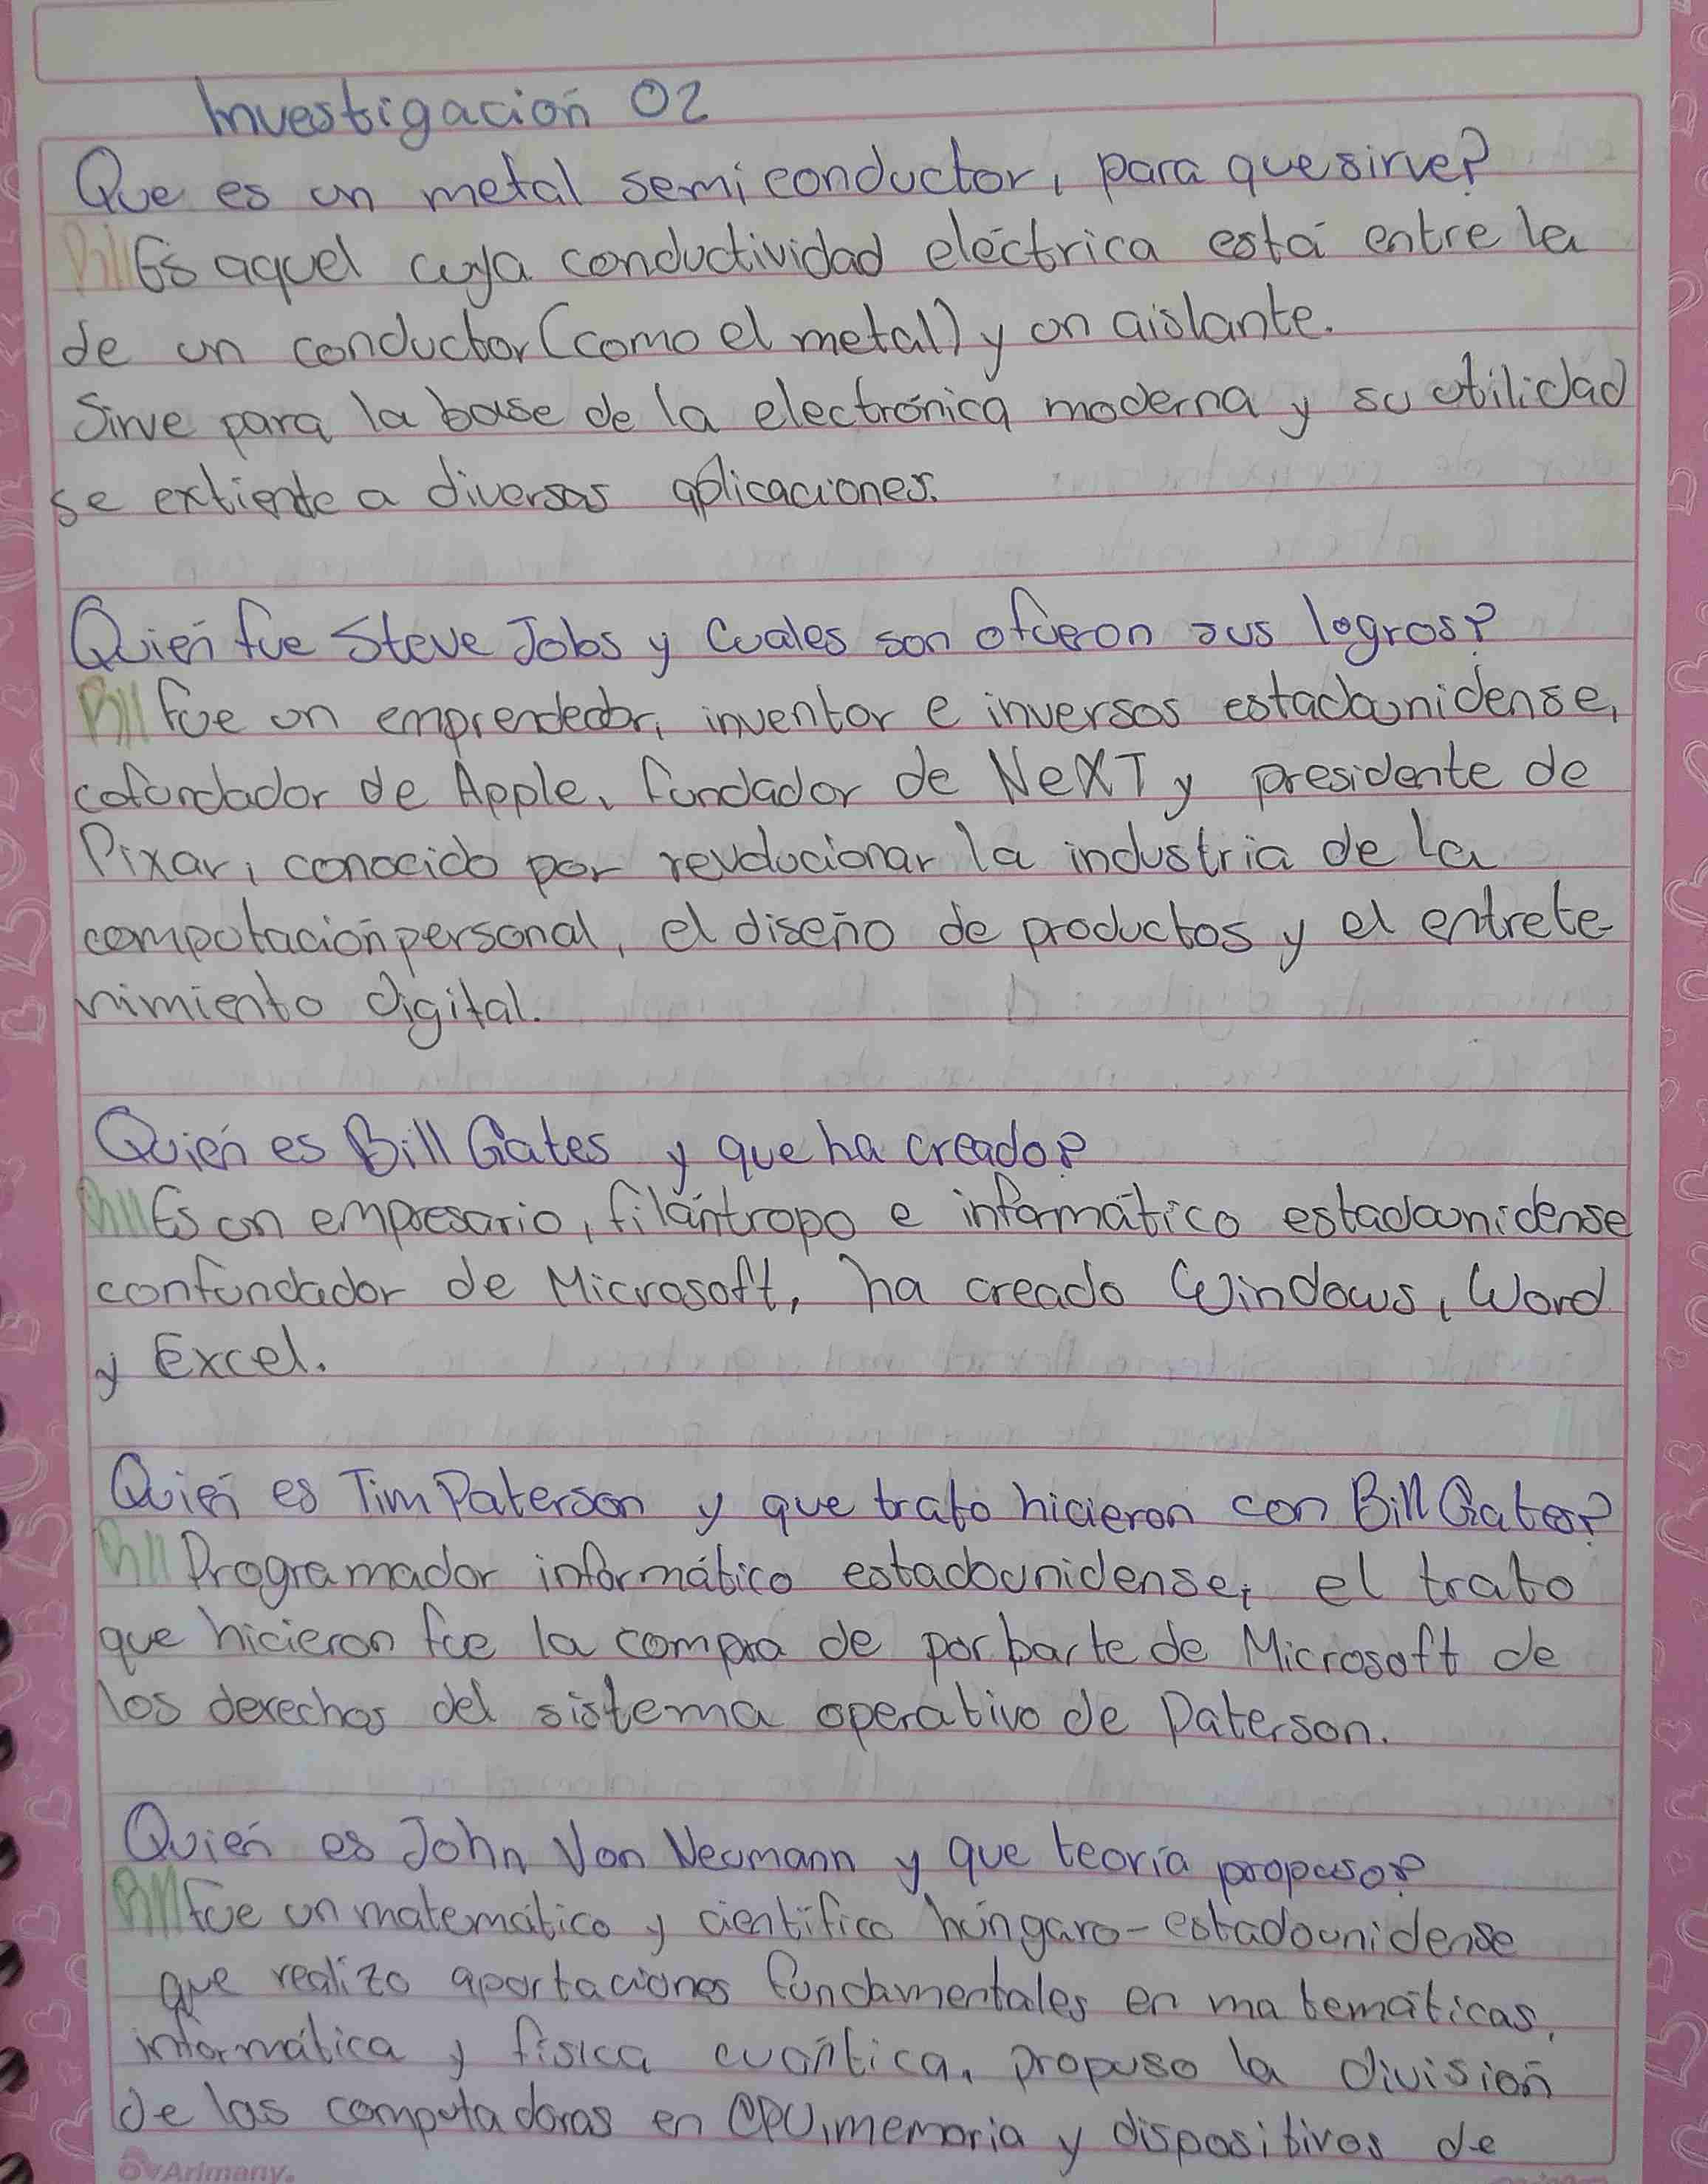 Investigación 02
Que es un metal semiconductor, para que sirve?
R// Es aquel cuya conductividad eléctrica está entre la
de un conductor (como el metal) y un aislante.
Sirve para la base de la electrónica moderna y su utilidad
se extiende a diversas aplicaciones.
Quién fue Steve Jobs y Cuales son o fueron sus logros?
R// Fue un emprendedor, inventor e inversos estadounidense,
cofundador de Apple, fundador de NeXT y presidente de
Pixar, conocido por revolucionar la industria de la
computación personal, el diseño de productos y el entrete-
nimiento digital.
Quién es Bill Gates y que ha creado?
R// Es un empresario, filántropo e informático estadounidense
confundador de Microsoft, ha creado Windows, Word
y Excel.
Quién es Tim Paterson y que trato hicieron con Bill Gates?
R// Programador informático estadounidense, el trato
que hicieron fue la compra de por parte de Microsoft de
los derechos del sistema operativo de Paterson.
Quién es John Von Neumann y que teoría propuso?
R// Fue un matemático y científico húngaro-estadounidense
que realizo aportaciones fundamentales en matemáticas,
informática y física cuántica, propuso la división
de las computadoras en CPU, memoria y dispositivos de
Arimany.